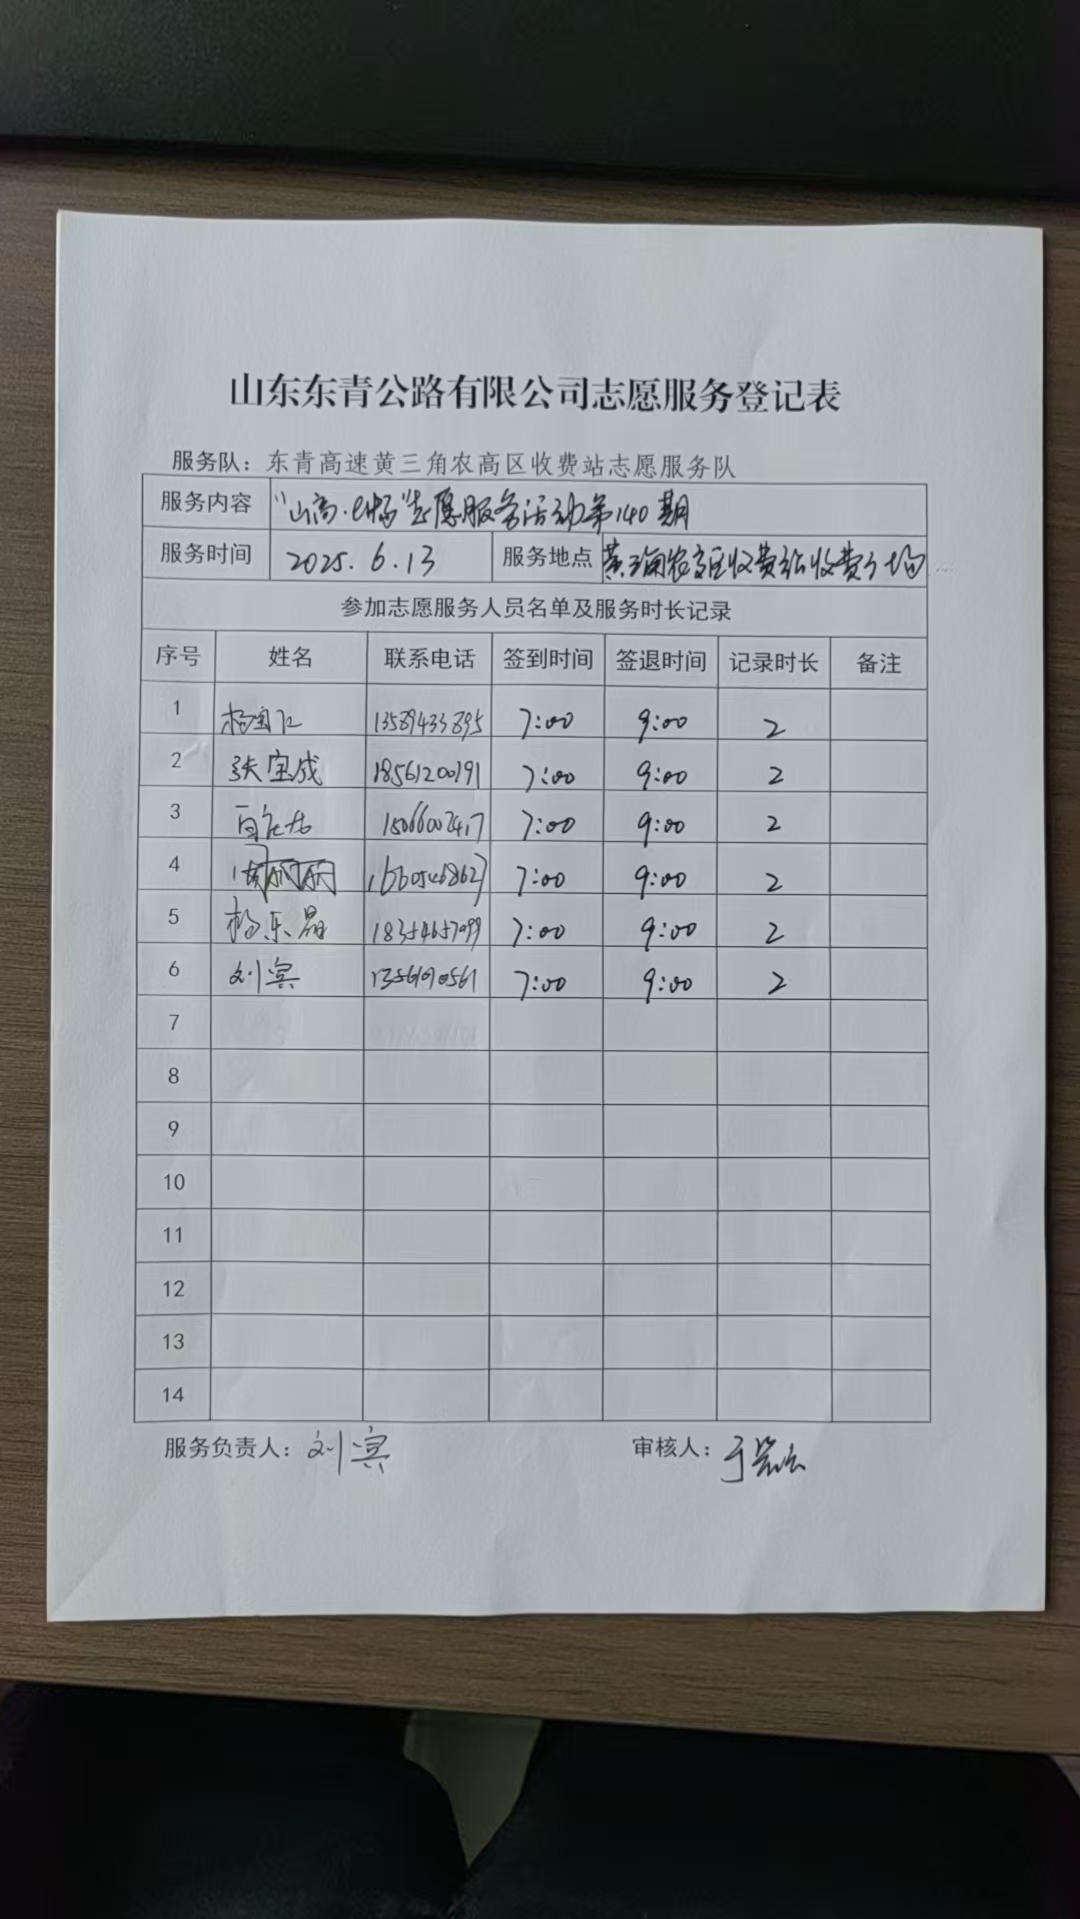 山东东青公路有限公司志愿服务登记表
服务队：东青高速黄三角农高区收费站志愿服务队
服务内容 “山高·e畅”志愿服务活动第140期
服务时间 2025.6.13 服务地点 黄三角农高区收费站收费广场
参加志愿服务人员名单及服务时长记录
序号 姓名 联系电话 签到时间 签退时间 记录时长 备注
1 13589433895 7:00 9:00 2
2 张宝成 18561200191 7:00 9:00 2
3 15066002417 7:00 9:00 2
4 7:00 9:00 2
5 杨乐晶 18354657099 7:00 9:00 2
6 刘宾 7:00 9:00 2
7
8
9
10
11
12
13
14
服务负责人：刘宾 审核人：于